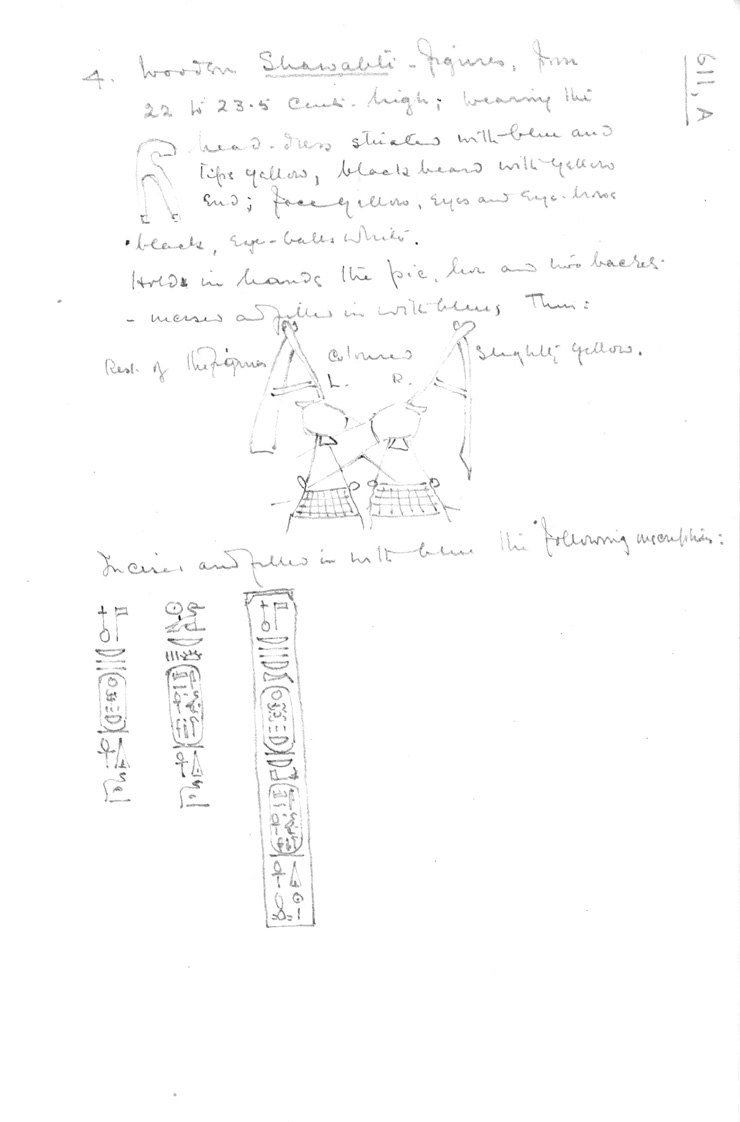 611, A
4. Wooden Shawabti - figures, from
22 to 23.5 Cent. high; wearing the
head-dress striated with blue and
lips yellow, black beard with yellow
End; face yellow, Eyes and Eye-brows
black, Eye-balls white.
Holds in hands the pic, hoe and two baskets
- incised and filled in with blue, Thus:
Rest of the figures Coloured slightly yellow.
L. R.
Incised and filled in with blue the following inscription: